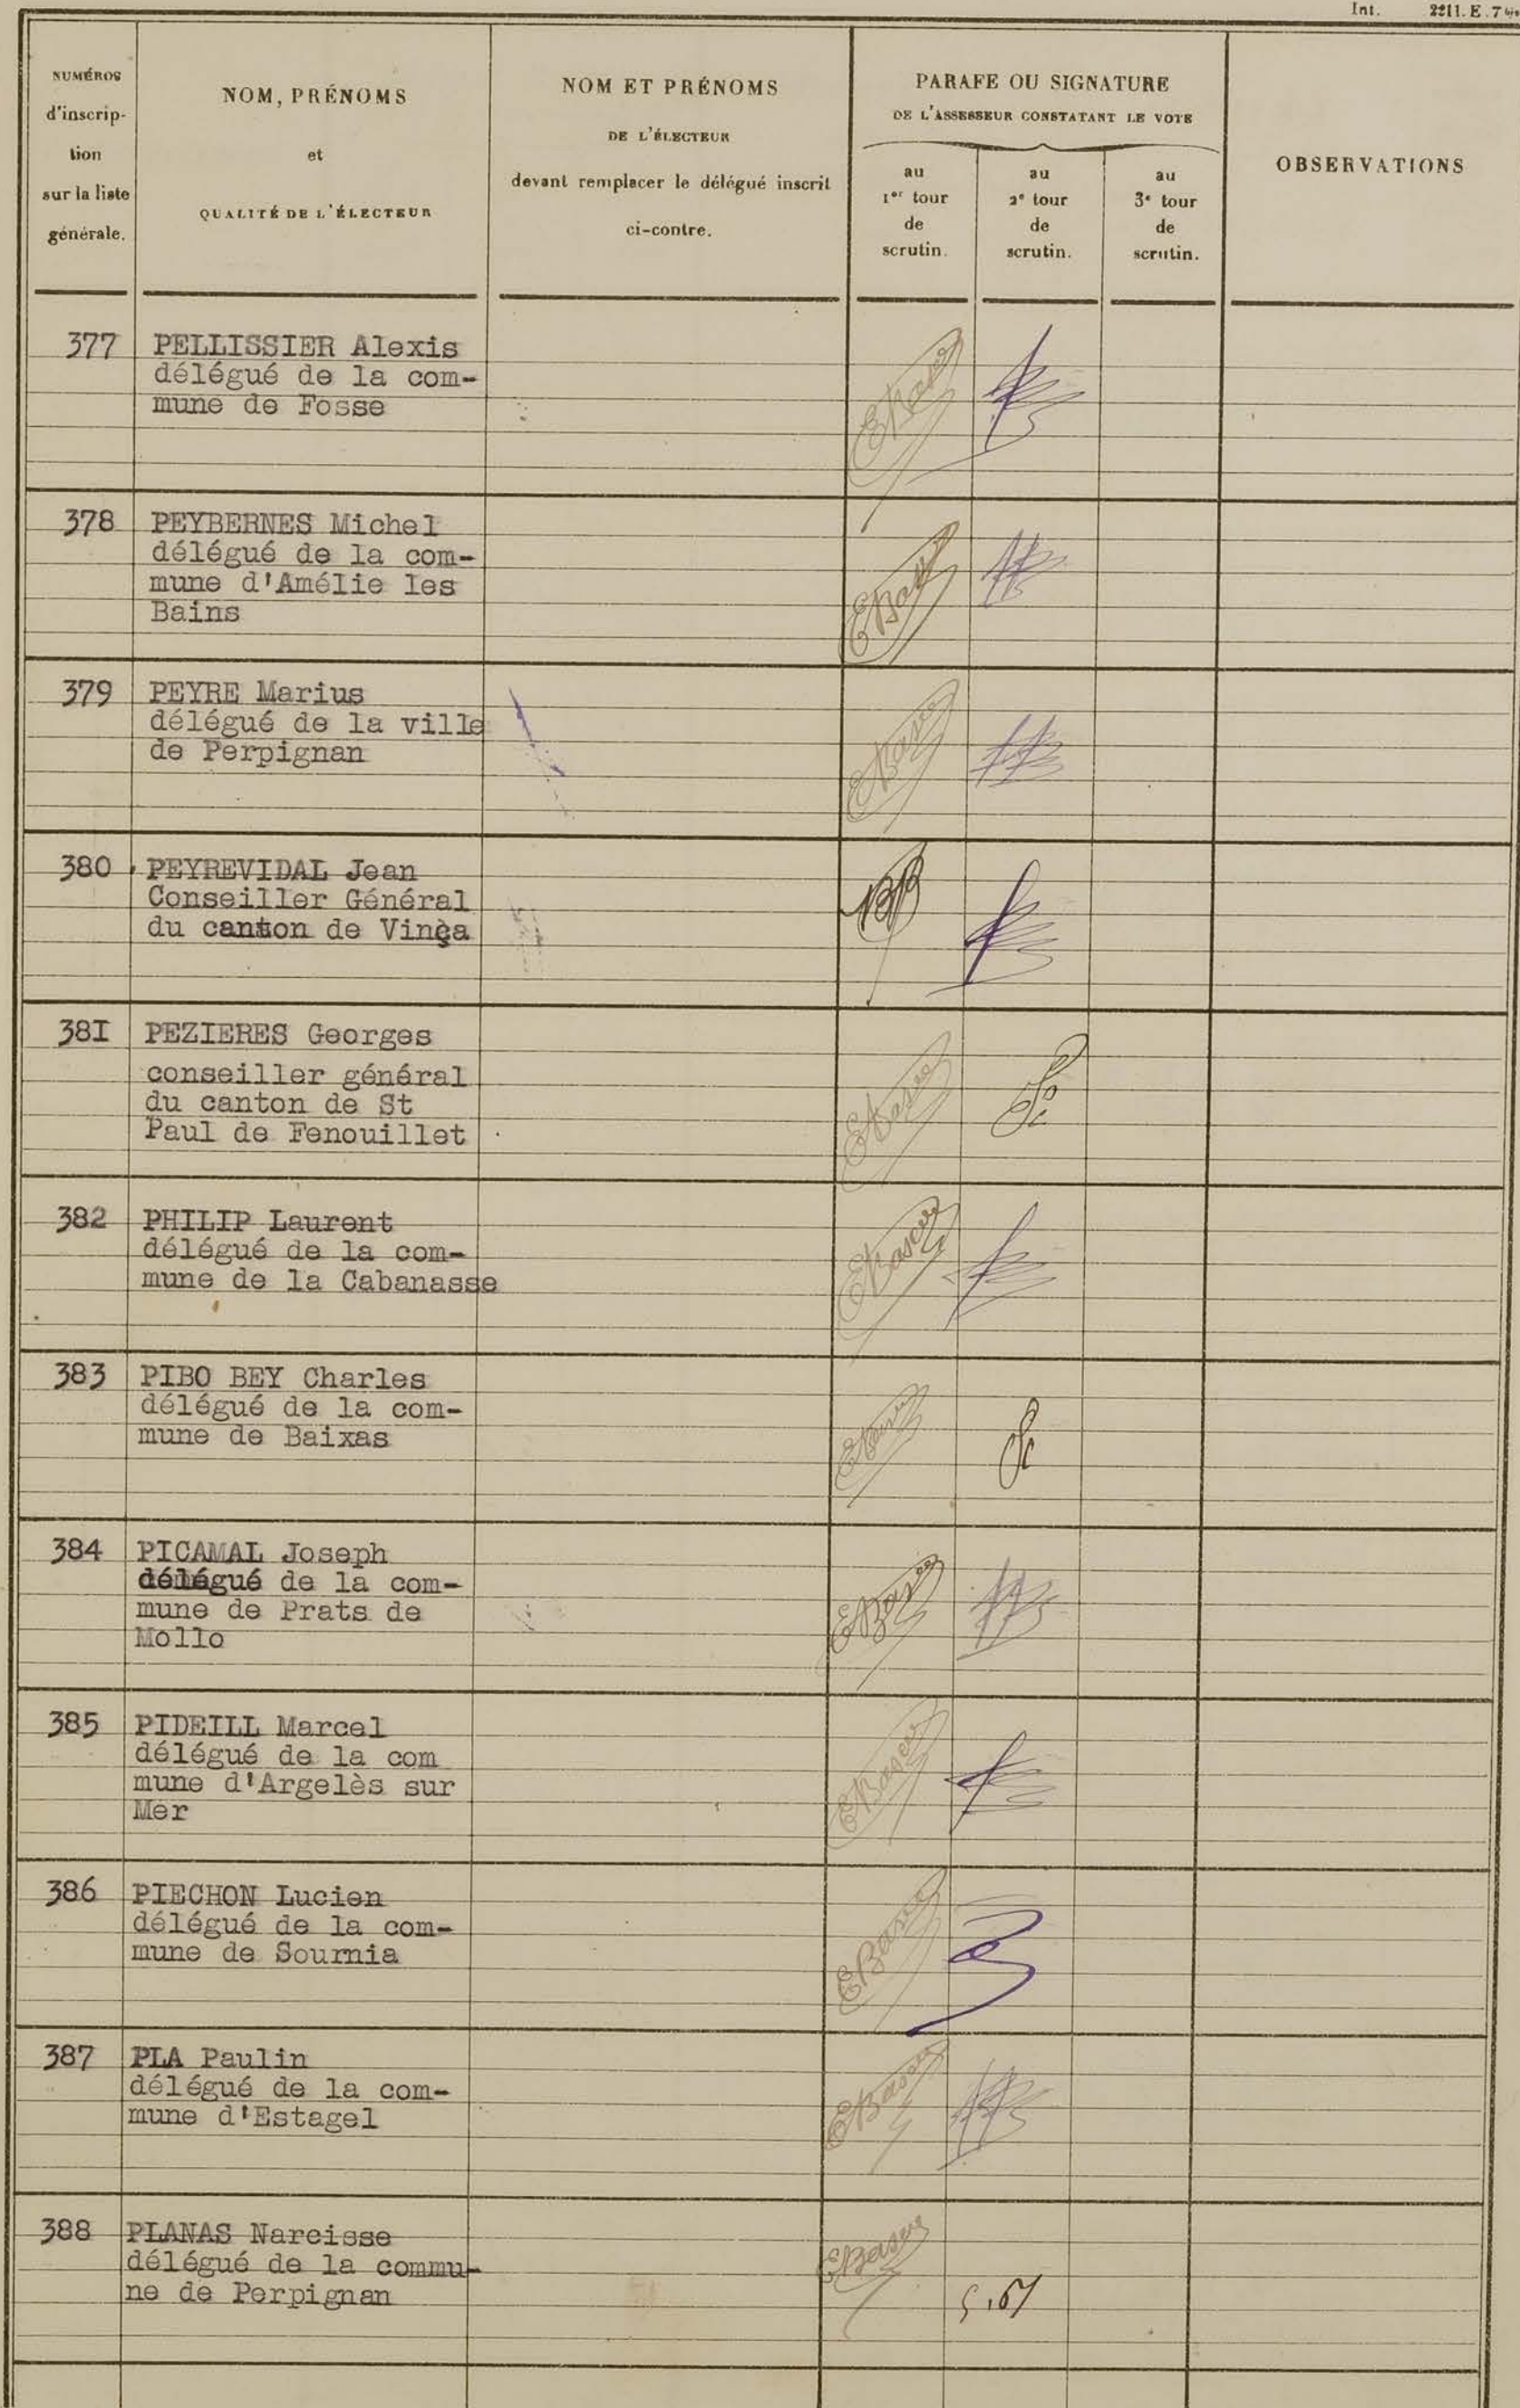 Int. 2211. E. 7 bis
NUMÉROS
d'inscrip-
tion
sur la liste
générale.
NOM, PRÉNOMS
et
QUALITÉ DE L'ÉLECTEUR
NOM ET PRÉNOMS
DE L'ÉLECTEUR
devant remplacer le délégué inscrit
ci-contre.
PARAFE OU SIGNATURE
DE L'ASSESSEUR CONSTATANT LE VOTE
au
1er tour
de
scrutin.
au
2e tour
de
scrutin.
au
3e tour
de
scrutin.
OBSERVATIONS
377 PELLISSIER Alexis
délégué de la com-
mune de Fosse
378 PEYBERNES Michel
délégué de la com-
mune d'Amélie les
Bains
379 PEYRE Marius
délégué de la ville
de Perpignan
380 PEYREVIDAL Jean
Conseiller Général
du canton de Vinça
381 PEZIERES Georges
conseiller général
du canton de St
Paul de Fenouillet
382 PHILIP Laurent
délégué de la com-
mune de la Cabanasse
383 PIBO BEY Charles
délégué de la com-
mune de Baixas
384 PICAMAL Joseph
délégué de la com-
mune de Prats de
Mollo
385 PIDEILL Marcel
délégué de la com
mune d'Argelès sur
Mer
386 PIECHON Lucien
délégué de la com-
mune de Sournia
387 PLA Paulin
délégué de la com-
mune d'Estagel
388 PLANAS Narcisse
délégué de la commu-
ne de Perpignan